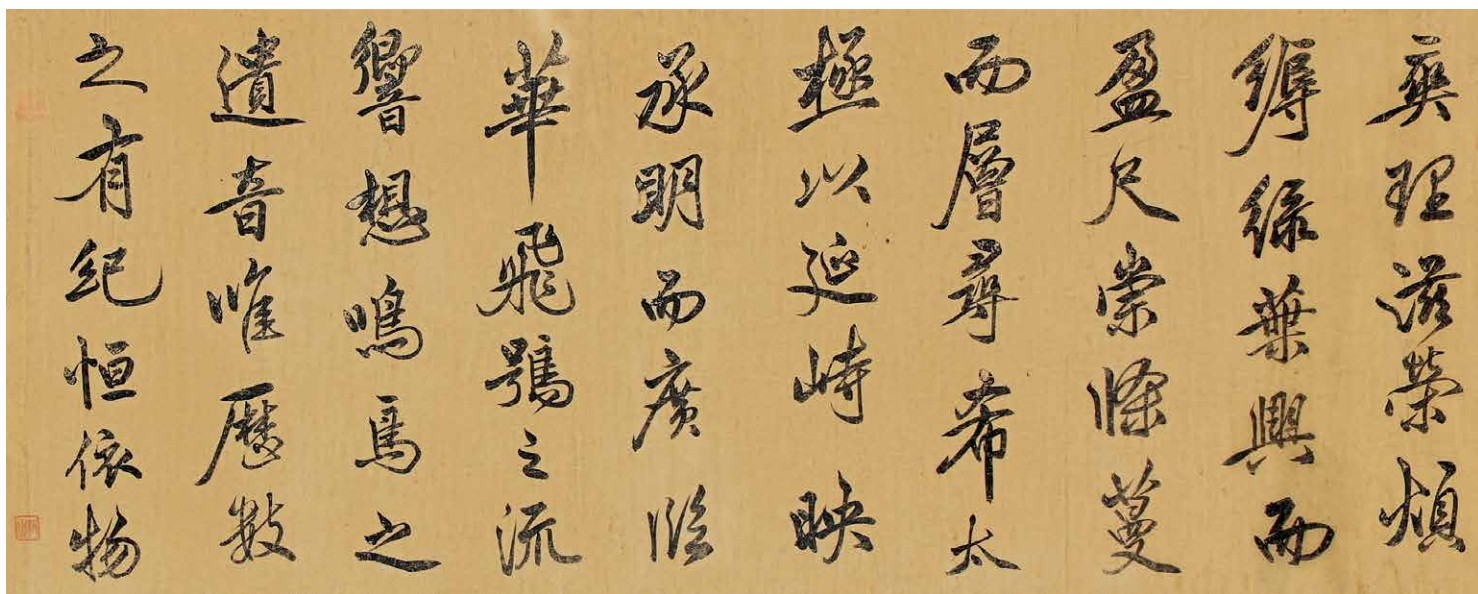 爽理滋榮煩
縟綠葉興而
盈尺崇條蔓
而層尋希太
極以延峙映
承明而廣臨
華飛鴞之流
響想鳴鳥之
遺音惟歷數
之有紀恒依物